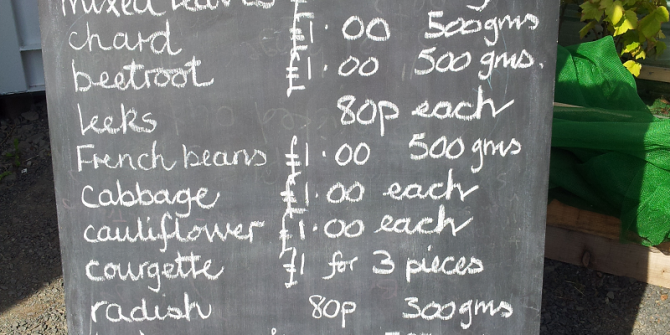 mixed leaves £
chard £1.00 500gms
beetroot £1.00 500 gms.
leeks 80p each
French beans £1.00 500gms
cabbage £1.00 each
cauliflower £1.00 each
courgette £1 for 3 pieces
radish 80p 300gms